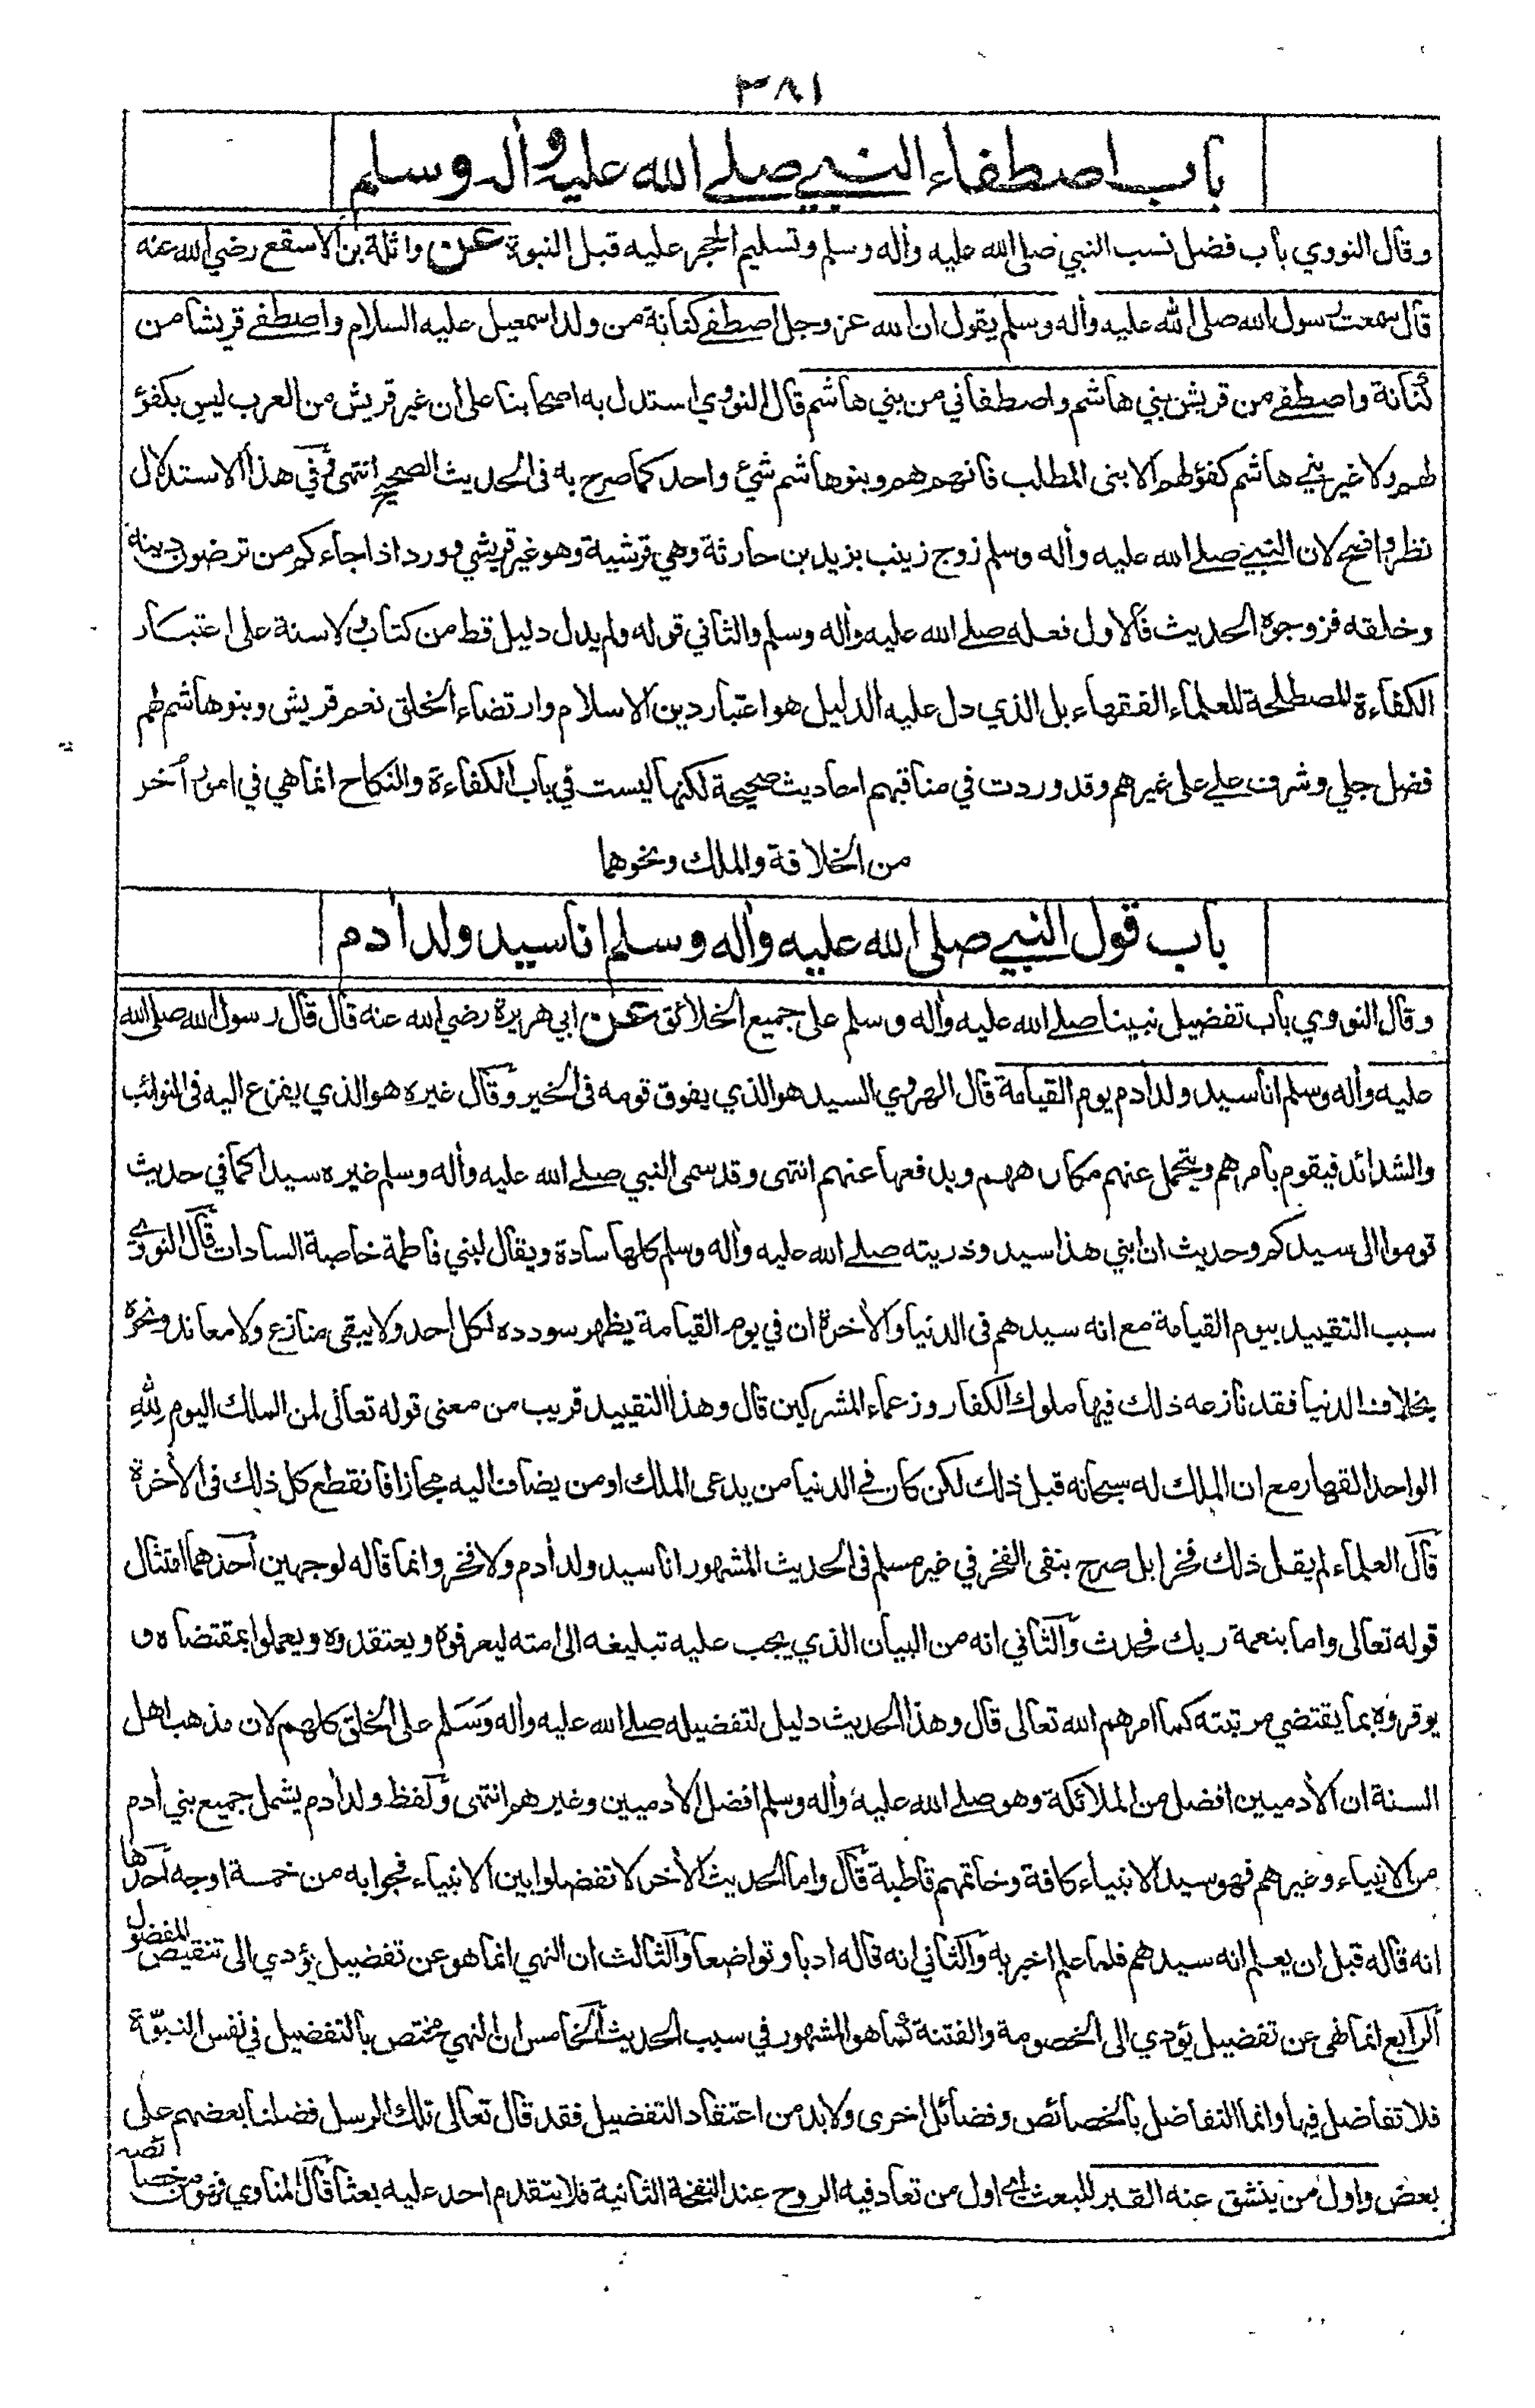 ٣٨١
باب اصطفاء النبي صلى الله عليه وأله وسلم
وقال النووي باب فضل نسب النبي صلى الله عليه وأله وسلم وتسليم الحجر عليه قبل النبوة عن واثلة بن الاسقع رضي الله عنه
قال سمعت رسول الله صلى الله عليه وأله وسلم يقول ان الله عز وجل اصطفى كنانة من ولد اسمعيل عليه السلام واصطفى قريشا من
كنانة واصطفى من قريش بني هاشم واصطفاني من بني هاشم قال النووي استدل به اصحابنا على ان غير قريش من العرب ليس بكفؤ
لهم ولا غير بني هاشم كفؤ لهم الا بنى المطلب فانهم هم وبنو هاشم شئ واحد كما صرح به فى الحديث الصحيح انتهى وفي هذا الاستدلال
نظر واضح لان النبي صلى الله عليه وأله وسلم زوج زينب بزيد بن حارثة وهي قرشية وهو غير قريشي وورد اذا جاءكم من ترضون دينه
وخلقه فزوجوه الحديث فالاول فعله صلى الله عليه وأله وسلم والثاني قوله ولم يدل دليل قط من كتاب ولا سنة على اعتبار
الكفاءة المصطلحة للعلماء الفقهاء بل الذي دل عليه الدليل هو اعتبار دين الاسلام وارتضاء الخلق نعم قريش وبنو هاشم لهم
فضل جلي وشرف علي على غيرهم وقد وردت في مناقبهم احاديث صحيحة لكنها ليست في باب الكفاءة والنكاح انما هي في امور أخر
من الخلافة والملك ونحوهما
باب قول النبي صلى الله عليه وأله وسلم انا سيد ولد أدم
وقال النووي باب تفضيل نبينا صلى الله عليه وأله وسلم على جميع الخلائق عن ابي هريرة رضي الله عنه قال قال رسول الله صلى الله
عليه وأله وسلم انا سيد ولد أدم يوم القيامة قال الهروي السيد هو الذي يفوق قومه فى الخير وقال غيره هو الذي يفزع اليه فى النوائب
والشدائد فيقوم بأمرهم ويتحمل عنهم مكارههم ويدفعها عنهم انتهى وقد سمى النبي صلى الله عليه وأله وسلم غيره سيدا كما في حديث
قوموا الى سيدكم وحديث ان ابني هذا سيد وذريته صلى الله عليه وأله وسلم كلها سادة ويقال لبني فاطمة خاصة السادات قال النووي
سبب التقييد بيوم القيامة مع انه سيدهم فى الدنيا والأخرة ان في يوم القيامة يظهر سودده لكل احد ولا يبقى منازع ولا معاند ونحوه
بخلاف الدنيا فقد نازعه ذلك فيها ملوك الكفار وزعماء المشركين قال وهذا التقييد قريب من معنى قوله تعالى لمن الملك اليوم لِلّٰهِ
الواحد القهار مع ان الملك له سبحانه قبل ذلك لكن كان في الدنيا من يدعى الملك او من يضاف اليه مجازا فانقطع كل ذلك فى الأخرة
قال العلماء لم يقل ذلك فخرا بل صرح بنفى الفخر في غير مسلم فى الحديث المشهور انا سيد ولد أدم ولا فخر وانما قاله لوجهين أحدهما امتثال
قوله تعالى واما بنعمة ربك فحدث والثاني انه من البيان الذي يجب عليه تبليغه الى امته ليعرفوه ويعتقدوه ويعملوا بمقتضاه و
يوقروه بما يقتضي مرتبته كما امرهم الله تعالى قال وهذا الحديث دليل لتفضيله صلى الله عليه وأله وَسَلم على الخلق كلهم لان مذهب اهل
السنة ان الأدميين افضل من الملائكة وهو صلى الله عليه وأله وسلم افضل الأدميين وغيرهم انتهى ولفظ ولد أدم يشمل جميع بني أدم
من الانبياء وغيرهم فهو سيد الانبياء كافة وخاتمهم قاطبة قال واما الحديث الأخر لا تفضلوا بين الانبياء فجوابه من خمسة اوجه أحدها
انه قاله قبل ان يعلم انه سيدهم فلما علم اخبر به والثاني انه قاله ادبا وتواضعا والثالث ان النهي انما هو عن تفضيل يؤدي الى تنقيص المفضول
الرابع انما نهى عن تفضيل يؤدي الى الخصومة والفتنة كما هو المشهور في سبب الحديث الخامس ان النهي مختص بالتفضيل في نفس النبوّة
فلا تفاضل فيها وانما التفاضل بالخصائص وفضائل اخرى ولا بد من اعتقاد التفضيل فقد قال تعالى تلك الرسل فضلنا بعضهم على
بعض واول من ينشق عنه القبر للبعث اي اول من تعاد فيه الروح عند النفخة الثانية فلا يتقدم احد عليه بعثا قال المناوي فهو من خصائصه